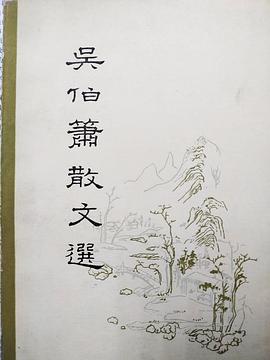 吳伯簫散文選